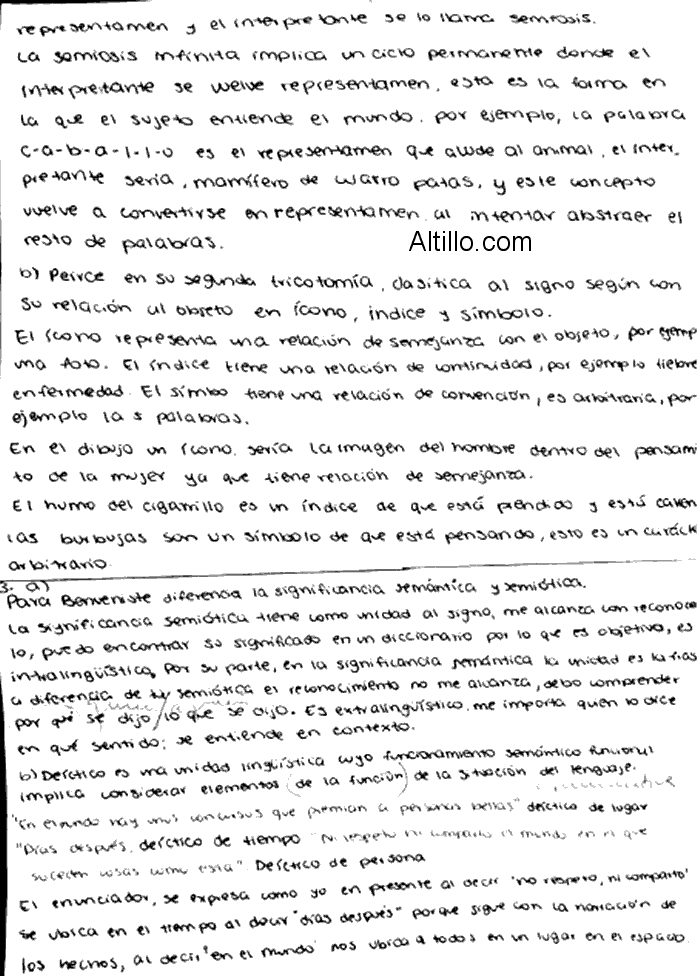 representamen y el interpretante se lo llama semiosis.
La semiosis infinita implica un ciclo permanente donde el
interpretante se vuelve representamen, esta es la forma en
la que el sujeto entiende el mundo. por ejemplo, la palabra
c-a-b-a-l-l-o es el representamen que alude al animal, el inter_
pretante sería, mamífero de cuatro patas, y este concepto
vuelve a convertirse en representamen al intentar abstraer el
resto de palabras.
Altillo.com
b) Peirce en su segunda tricotomía, clasifica al signo según con
su relación al objeto en ícono, índice y símbolo.
El ícono representa una relación de semejanza con el objeto, por ejemp
una foto. El índice tiene una relación de continuidad, por ejemplo fiebre
enfermedad. El símbo tiene una relación de convención, es arbitraria, por
ejemplo las palabras.
En el dibujo un ícono, sería la imagen del hombre dentro del pensami
to de la mujer ya que tiene relación de semejanza.
El humo del cigarrillo es un índice de que está prendido y está calien
las burbujas son un símbolo de que está pensando, esto es un caráct
arbitrario.
3. a)
Para Benveniste diferencia la significancia semántica y semiótica.
La significancia semiótica tiene como unidad al signo, me alcanza con reconoce
lo, puedo encontrar su significado en un diccionario por lo que es objetivo, es
intralingüístico. Por su parte, en la significancia semántica la unidad es la fras
a diferencia de la semiótica el reconocimiento no me alcanza, debo comprender
por qué se dijo lo que se dijo. Es extralingüístico, me importa quien lo dice
en qué sentido; se entiende en contexto.
b) Deíctico es una unidad lingüística cuyo funcionamiento semántico funcional
implica considerar elementos (de la función) de la situación del lenguaje.
"En el mundo hay unos concursos que premian a personas bellas" deíctico de lugar
"Días después, deíctico de tiempo "Ni respeto ni comparto el mundo en el que
suceden cosas como esta". Deíctico de persona
El enunciador, se expresa como yo en presente al decir "no respeto, ni comparto"
se ubica en el tiempo al decir "días después" porque sigue con la narración de
los hechos, al decir "en el mundo" nos ubica a todos en un lugar en el espacio.